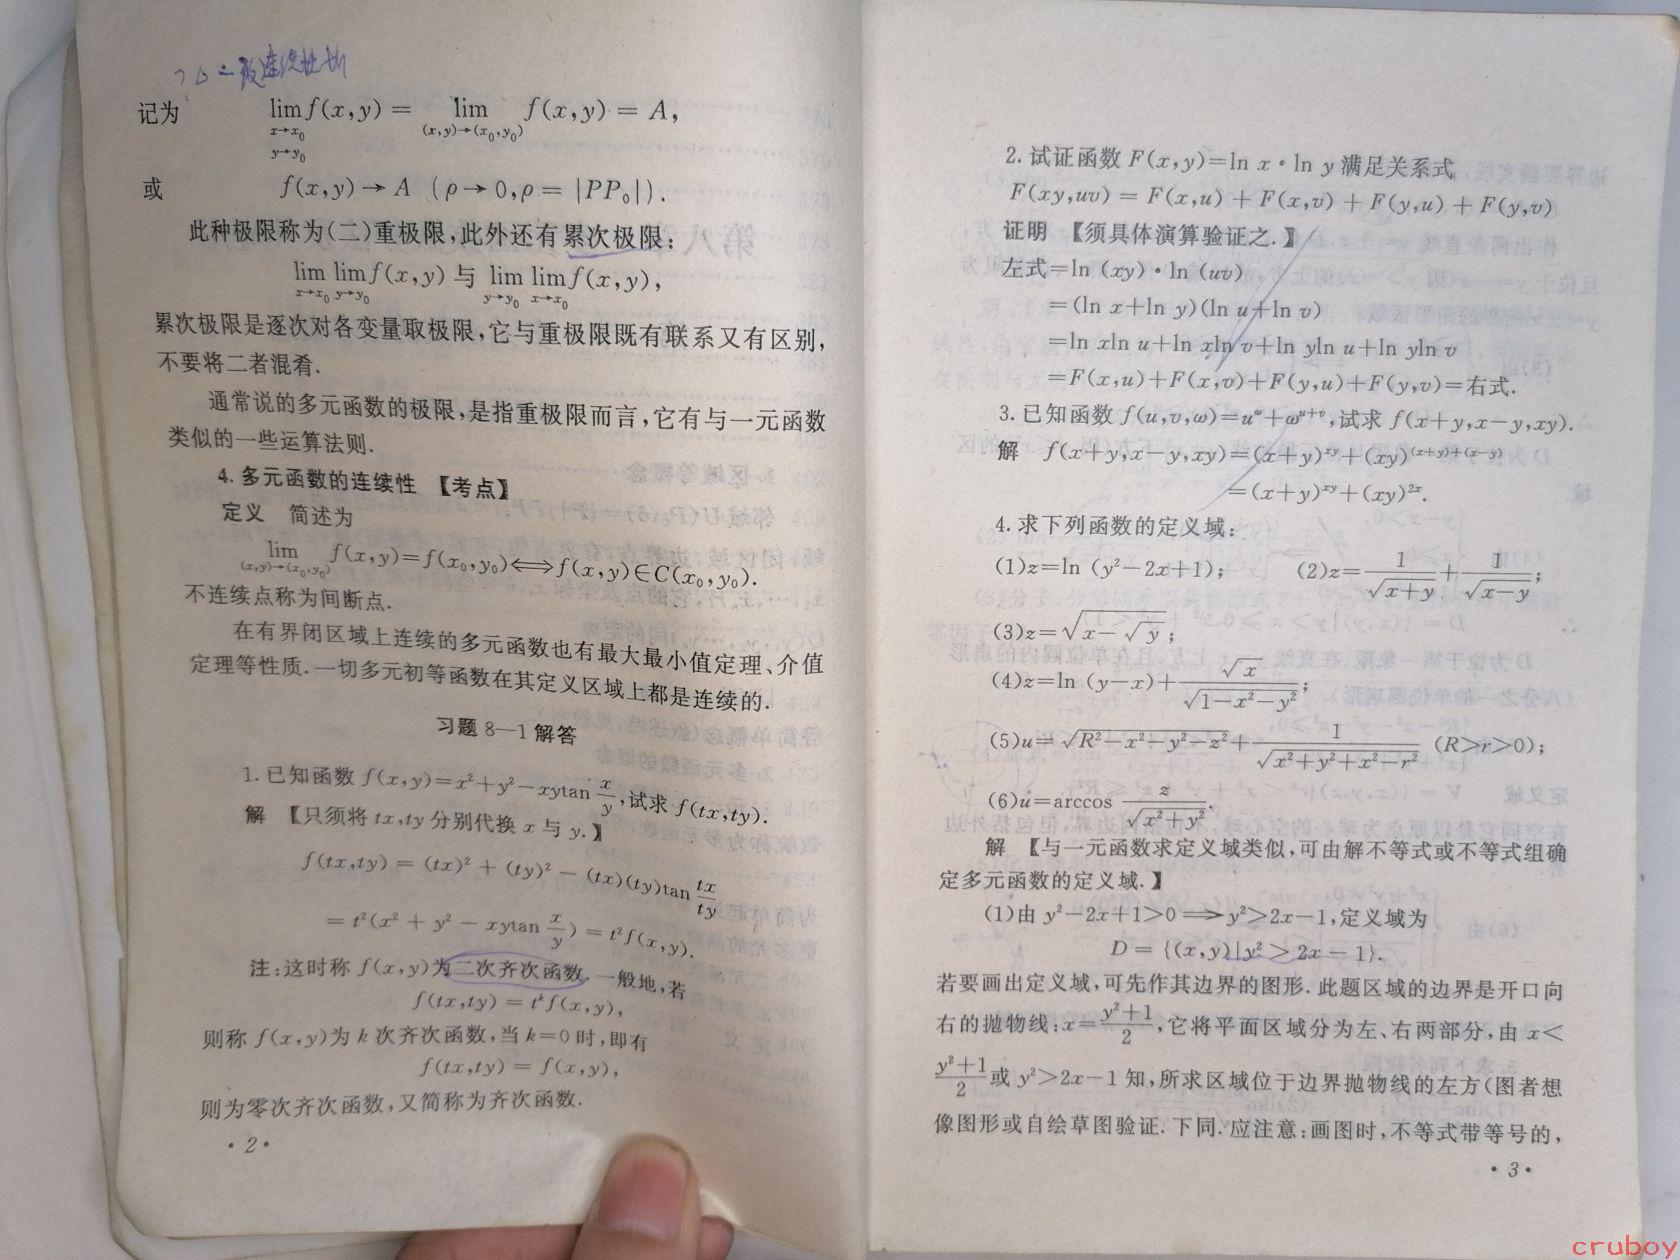 记为 lim f(x,y) = lim f(x,y) = A,
x→x₀ (x,y)→(x₀,y₀)
y→y₀
或 f(x,y)→A (ρ→0,ρ=|PP₀|).
此种极限称为(二)重极限,此外还有累次极限:
lim lim f(x,y) 与 lim lim f(x,y),
x→x₀ y→y₀ y→y₀ x→x₀
累次极限是逐次对各变量取极限,它与重极限既有联系又有区别,
不要将二者混肴.
通常说的多元函数的极限,是指重极限而言,它有与一元函数
类似的一些运算法则.
4.多元函数的连续性 【考点】
定义 简述为
lim f(x,y)=f(x₀,y₀)⟺f(x,y)∈C(x₀,y₀).
(x,y)→(x₀,y₀)
不连续点称为间断点.
在有界闭区域上连续的多元函数也有最大最小值定理、介值
定理等性质.一切多元初等函数在其定义区域上都是连续的.
习题8—1解答
1.已知函数 f(x,y)=x²+y²−xytan x/y,试求 f(tx,ty).
解 【只须将 tx,ty 分别代换 x 与 y.】
f(tx,ty) = (tx)² + (ty)² − (tx)(ty)tan tx/ty
= t²(x² + y² − xytan x/y) = t²f(x,y).
注:这时称 f(x,y)为二次齐次函数.一般地,若
f(tx,ty) = tᵏf(x,y),
则称 f(x,y)为 k 次齐次函数,当 k=0 时,即有
f(tx,ty) = f(x,y),
则为零次齐次函数,又简称为齐次函数.
·2·
2.试证函数 F(x,y)=ln x·ln y 满足关系式
F(xy,uv) = F(x,u) + F(x,v) + F(y,u) + F(y,v)
证明 【须具体演算验证之.】
左式=ln (xy)·ln (uv)
=(ln x+ln y)(ln u+ln v)
=ln xln u+ln xln v+ln yln u+ln yln v
=F(x,u)+F(x,v)+F(y,u)+F(y,v)=右式.
3.已知函数 f(u,v,ω)=u^ω+ω^(u+v),试求 f(x+y,x−y,xy).
解 f(x+y,x−y,xy)=(x+y)^(xy)+(xy)^((x+y)+(x−y))
=(x+y)^(xy)+(xy)^(2x).
4.求下列函数的定义域:
(1)z=ln (y²−2x+1); (2)z=1/√(x+y)+1/√(x−y);
(3)z=√(x−√y);
(4)z=ln (y−x)+√x/√(1−x²−y²);
(5)u=√(R²−x²−y²−z²)+1/√(x²+y²+x²−r²) (R>r>0);
(6)u=arccos z/√(x²+y²).
解 【与一元函数求定义域类似,可由解不等式或不等式组确
定多元函数的定义域.】
(1)由 y²−2x+1>0⟹y²>2x−1,定义域为
D = {(x,y)|y² > 2x − 1}.
若要画出定义域,可先作其边界的图形.此题区域的边界是开口向
右的抛物线:x=(y²+1)/2,它将平面区域分为左、右两部分,由 x<
(y²+1)/2 或 y²>2x−1 知,所求区域位于边界抛物线的左方(图者想
像图形或自绘草图验证.下同.应注意:画图时,不等式带等号的,
·3·
cruboy